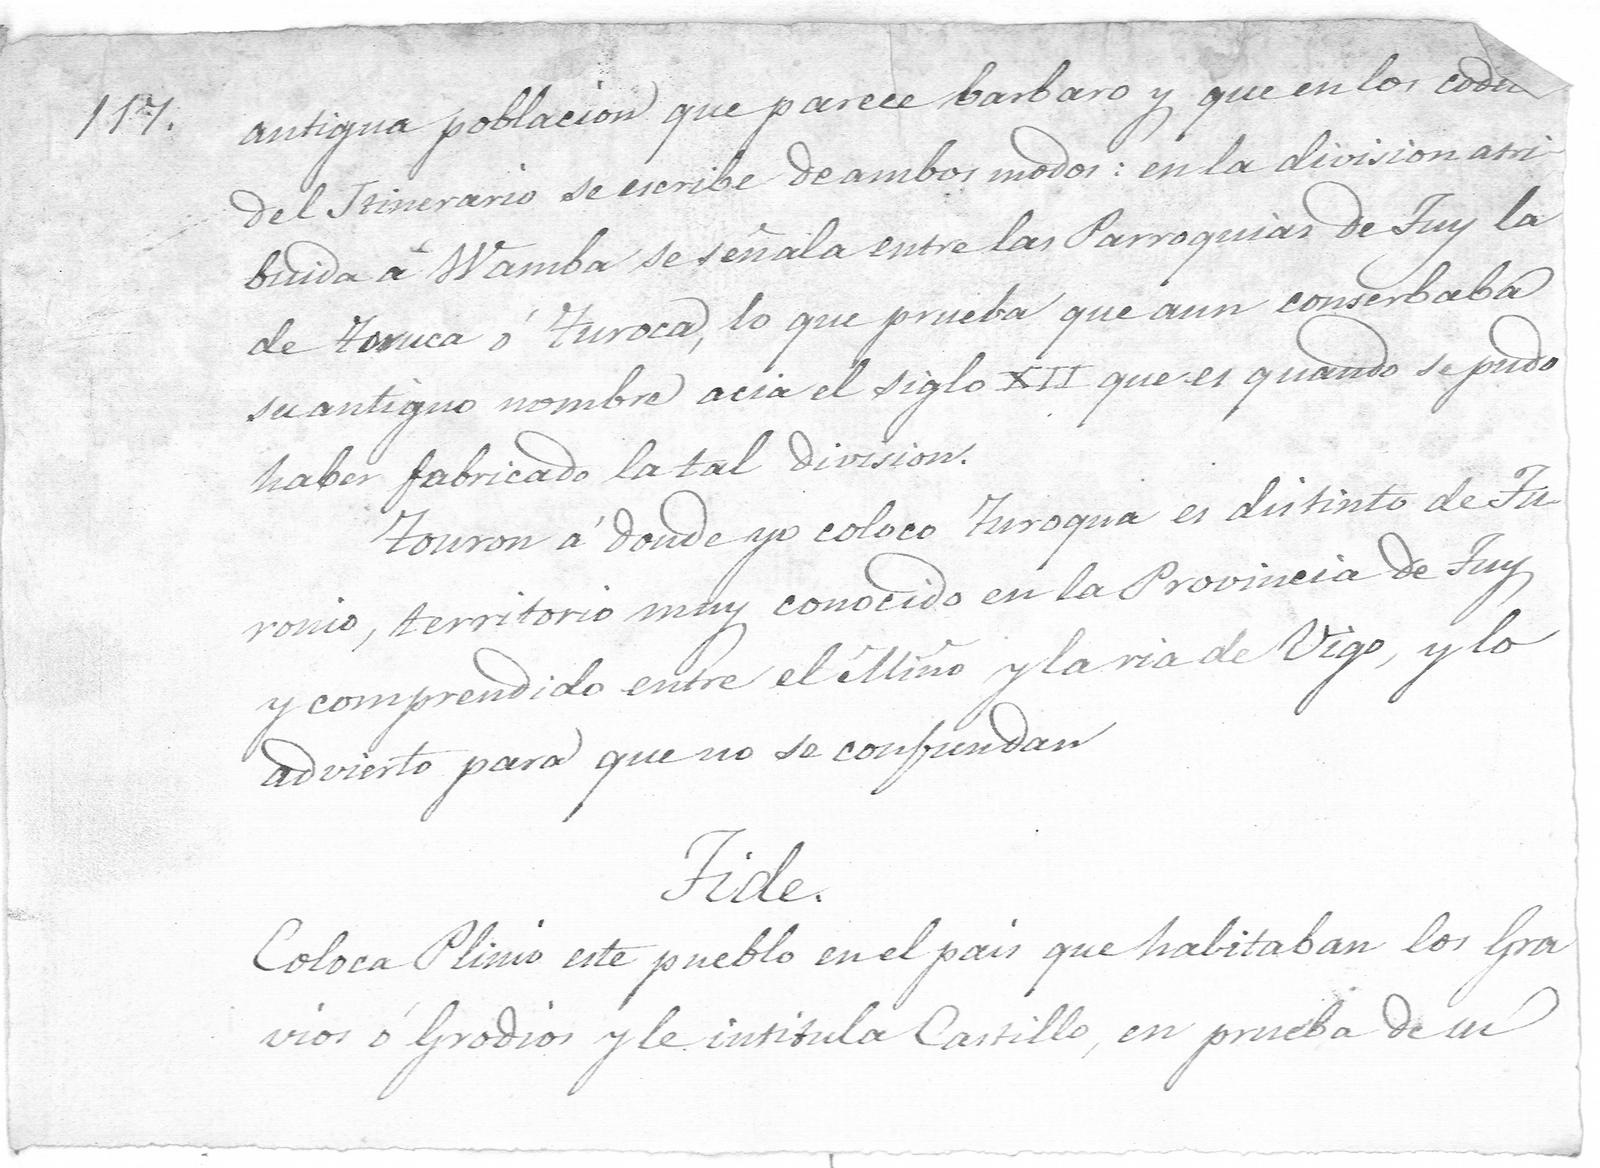 117.
antigua poblacion que parece barbaro y que en los codic
del Itinerario se escribe de ambos modos: en la division atri-
buida á Wamba se señala entre las Parroquias de Tuy la
de Toruca ó Turoca, lo que prueba que aun conserbaba
su antiguo nombre acia el siglo XII que es quando se pudo
haber fabricado la tal division.
Touron á donde yo coloco Turoqua es distinto de Tu-
ronio, territorio muy conocido en la Provincia de Tuy
y comprendido entre el Miño y la ria de Vigo, y lo
advierto para que no se confundan
Tide.
Coloca Plinio este pueblo en el pais que habitaban los Gra
vios ó Grodios y le intitula Castillo, en prueba de su